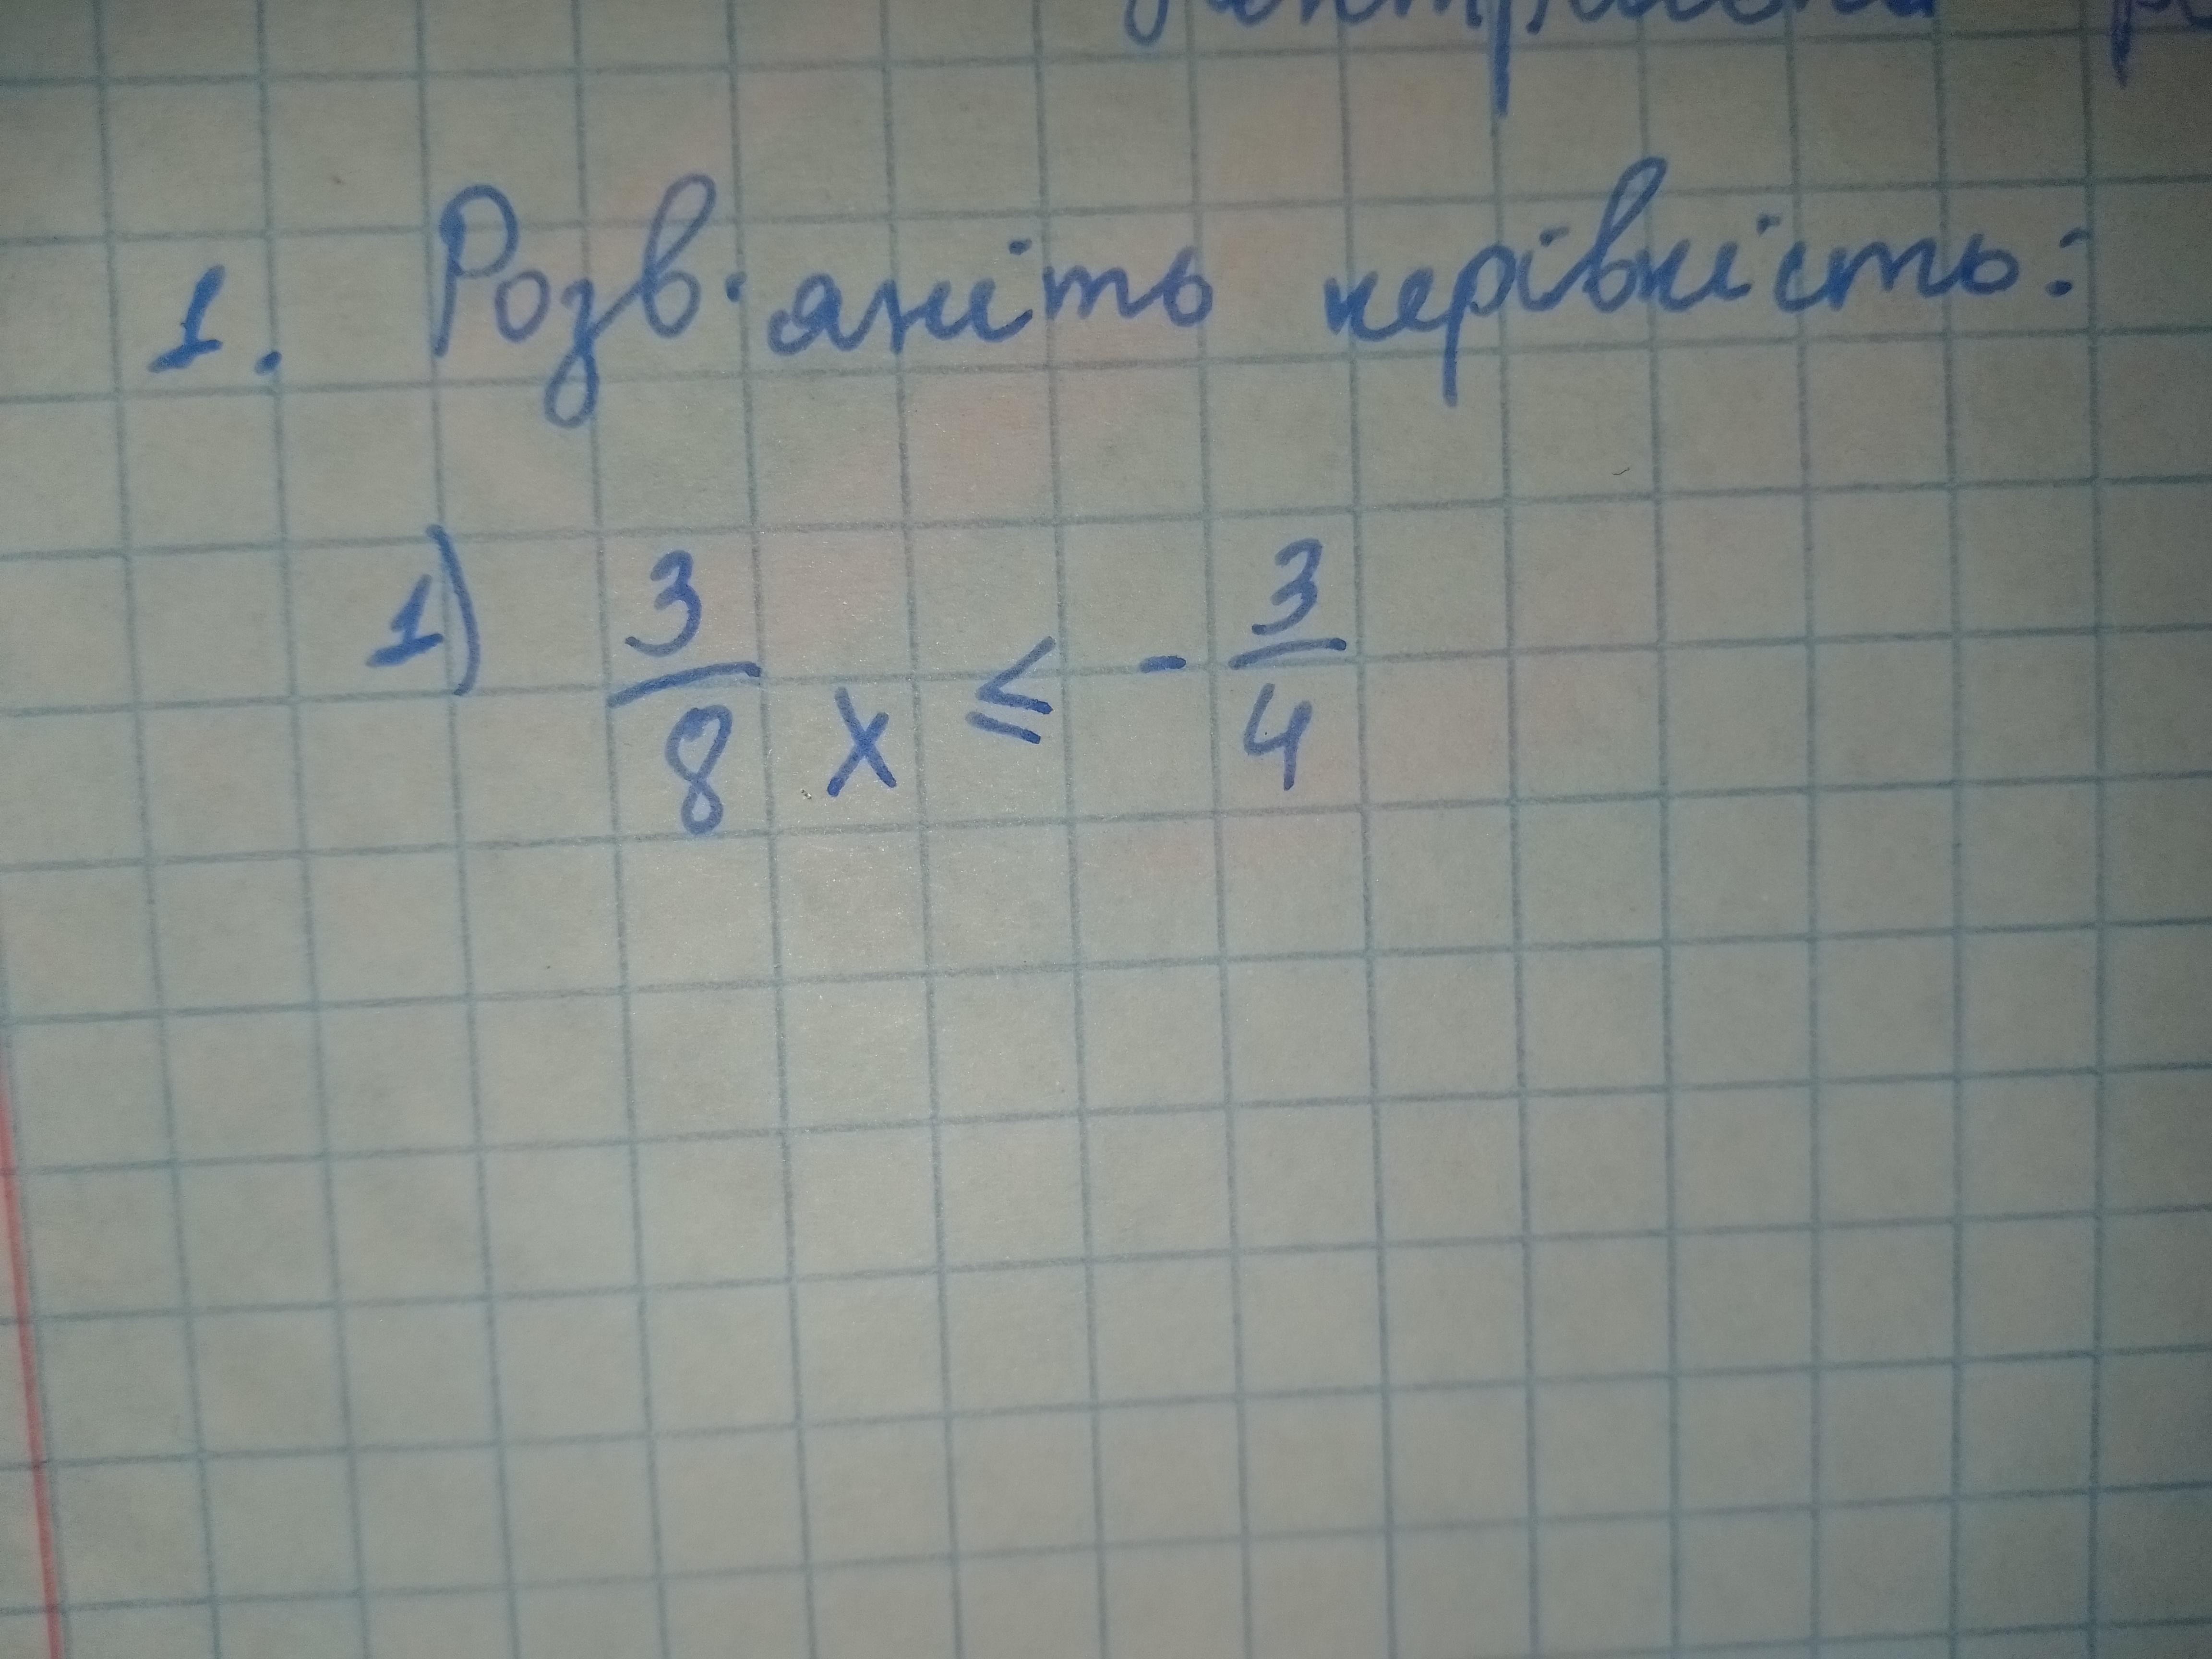 1. Розв'яніть нерівність:
1) 3/8 x ≤ - 3/4